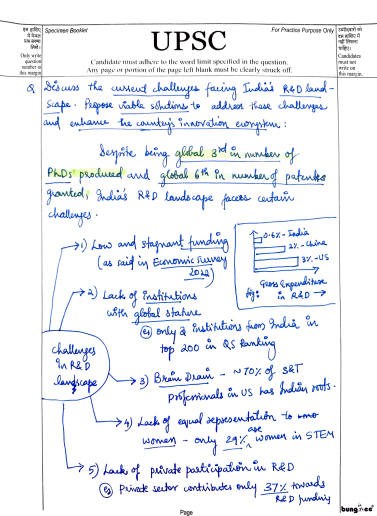 इस हाशिए
में मिलान
प्रश्न संख्या
लिखें।
Only write
question
number in
this margin
Specimen Booklet
For Practice Purpose Only
UPSC
Candidate must adhere to the word limit specified in the question.
Any page or portion of the page left blank must be clearly struck off.
उम्मीदवारों को
इस हाशिए में
नहीं लिखना
चाहिए।
Candidates
must not
write on
this margin.
Q Discuss the current challenges facing India's R&D land-
scape. Propose viable solutions to address these challenges
and enhance the country's innovation ecosystem :
Despite being global 3rd in number of
PhDs produced and global 6th in number of patents
granted, India's R&D landscape faces certain
challenges.
1) Low and stagnant funding
(as said in Economic Survey
2022)
0.6% - India
2% - China
3% - US
Gross Expenditure
fig: in R&D →
2) Lack of institutions
with global stature
eg only 3 institutions from India in
top 200 in QS Ranking
challenges
in R&D
landscape
3) Brain Drain - ~70% of S&T
professionals in US has Indian roots.
4) Lack of equal representation to
women - only 29% are women in STEM
5) Lack of private participation in R&D
eg Private sector contributes only 37% towards
R&D funding
Page